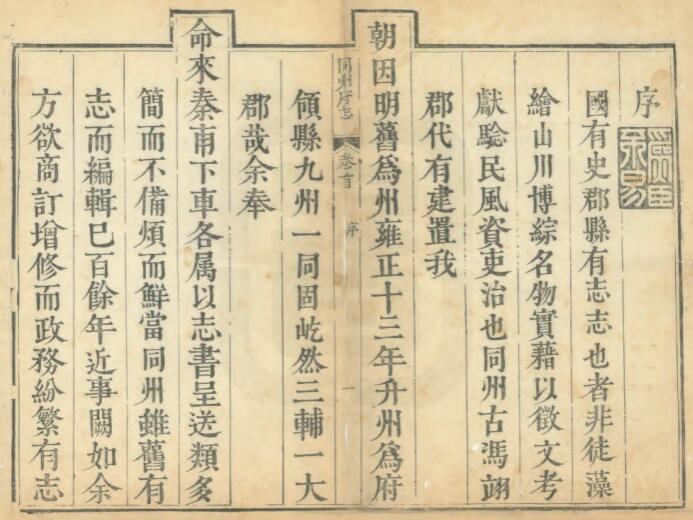 序
國有史郡縣有志志也者非徒藻
繪山川博綜名物實藉以徵文考
獻騐民風資吏治也同州古馮翊
郡代有建置我
朝因明舊爲州雍正十三年升州爲府
同州府志
卷首
序
一
領縣九州一同固屹然三輔一大
郡哉余奉
命來秦甫下車各属以志書呈送類多
簡而不備煩而鮮當同州雖舊有
志而編輯已百餘年近事闕如余
方欲商訂增修而政務紛繁有志